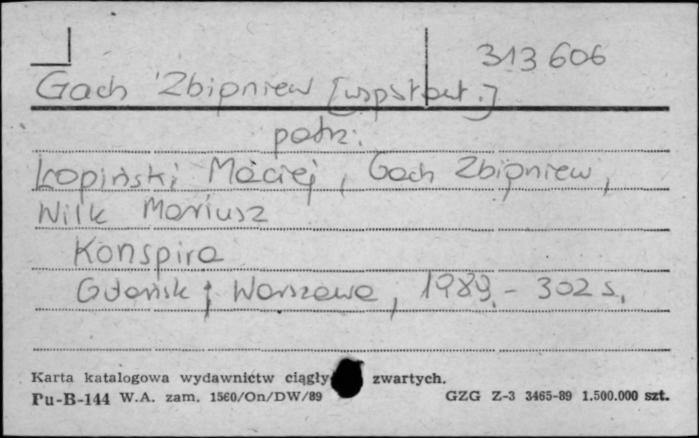 313 606
Gach Zbigniew [współaut.]
patrz:
Łopiński Maciej, Gach Zbigniew,
Wilk Mariusz
Konspira
Gdańsk ; Warszawa, 1989. - 302 s.
Karta katalogowa wydawnictw ciągły zwartych.
Pu-B-144 W.A. zam. 1560/On/DW/89 GZG Z-3 3465-89 1.500.000 szt.